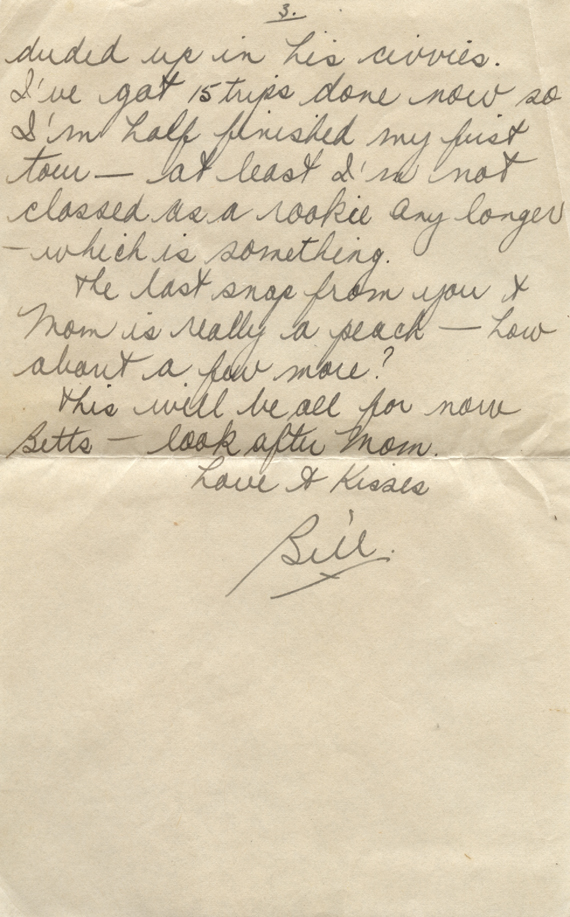 3.
duded up in his civvies.
I've got 15 trips done now so
I'm half finished my first
tour — at least I'm not
classed as a rookie any longer
— which is something.
The last snap from you &
Mom is really a peach — how
about a few more?
This will be all for now
Betts — look after Mom.
Love & Kisses
Bill.